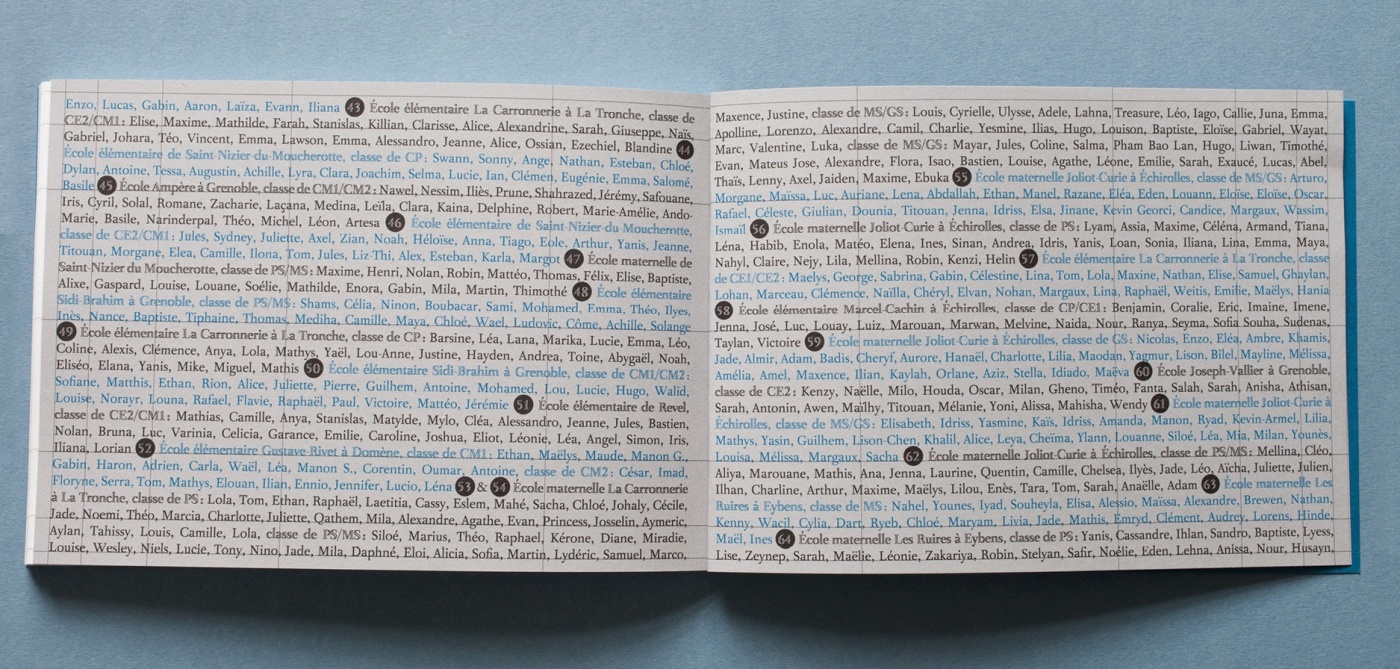 Enzo, Lucas, Gabin, Aaron, Laïza, Evann, Iliana 43 École élémentaire La Carronnerie à La Tronche, classe de
CE2/CM1 : Elise, Maxime, Mathilde, Farah, Stanislas, Killian, Clarisse, Alice, Alexandrine, Sarah, Giuseppe, Naïs,
Gabriel, Johara, Téo, Vincent, Emma, Lawson, Emma, Alessandro, Jeanne, Alice, Ossian, Ezechiel, Blandine 44
École élémentaire de Saint-Nizier-du-Moucherotte, classe de CP : Swann, Sonny, Ange, Nathan, Esteban, Chloé,
Dylan, Antoine, Tessa, Augustin, Achille, Lyra, Clara, Joachim, Selma, Lucie, Ian, Clémen, Eugénie, Emma, Salomé,
Basile 45 École Ampère à Grenoble, classe de CM1/CM2 : Nawel, Nessim, Iliès, Prune, Shahrazed, Jérémy, Safouane,
Iris, Cyril, Solal, Romane, Zacharie, Laçana, Medina, Leïla, Clara, Kaina, Delphine, Robert, Marie-Amélie, Ando-
Marie, Basile, Narinderpal, Théo, Michel, Léon, Artesa 46 École élémentaire de Saint-Nizier-du-Moucherotte,
classe de CE2/CM1 : Jules, Sydney, Juliette, Axel, Zian, Noah, Héloïse, Anna, Tiago, Eole, Arthur, Yanis, Jeanne,
Titouan, Morgane, Elea, Camille, Ilona, Tom, Jules, Liz-Thi, Alex, Esteban, Karla, Margot 47 École maternelle de
Saint-Nizier du Moucherotte, classe de PS/MS : Maxime, Henri, Nolan, Robin, Mattéo, Thomas, Félix, Elise, Baptiste,
Alixe, Gaspard, Louise, Louane, Soélie, Mathilde, Enora, Gabin, Mila, Martin, Thimothé 48 École élémentaire
Sidi-Brahim à Grenoble, classe de PS/MS : Shams, Célia, Ninon, Boubacar, Sami, Mohamed, Emma, Théo, Ilyes,
Inès, Nance, Baptiste, Tiphaine, Thomas, Mediha, Camille, Maya, Chloé, Wael, Ludovic, Côme, Achille, Solange
49 École élémentaire La Carronnerie à La Tronche, classe de CP : Barsine, Léa, Lana, Marika, Lucie, Emma, Léo,
Coline, Alexis, Clémence, Anya, Lola, Mathys, Yaël, Lou-Anne, Justine, Hayden, Andrea, Toine, Abygaël, Noah,
Eliséo, Elana, Yanis, Mike, Miguel, Mathis 50 École élémentaire Sidi-Brahim à Grenoble, classe de CM1/CM2 :
Sofiane, Matthis, Ethan, Rion, Alice, Juliette, Pierre, Guilhem, Antoine, Mohamed, Lou, Lucie, Hugo, Walid,
Louise, Norayr, Louna, Rafael, Flavie, Raphaël, Paul, Victoire, Mattéo, Jérémie 51 École élémentaire de Revel,
classe de CE2/CM1 : Mathias, Camille, Anya, Stanislas, Matylde, Mylo, Cléa, Alessandro, Jeanne, Jules, Bastien,
Nolan, Bruna, Luc, Varinia, Celicia, Garance, Emilie, Caroline, Joshua, Eliot, Léonie, Léa, Angel, Simon, Iris,
Iliana, Lorian 52 École élémentaire Gustave-Rivet à Domène, classe de CM1 : Ethan, Maëlys, Maude, Manon G.,
Gabin, Haron, Adrien, Carla, Waël, Léa, Manon S., Corentin, Oumar, Antoine, classe de CM2 : César, Imad,
Floryne, Serra, Tom, Mathys, Elouan, Ilian, Ennio, Jennifer, Lucio, Léna 53 & 54 École maternelle La Carronnerie
à La Tronche, classe de PS : Lola, Tom, Ethan, Raphaël, Laetitia, Cassy, Eslem, Mahé, Sacha, Chloé, Johaly, Cécile,
Jade, Noemi, Théo, Marcia, Charlotte, Juliette, Qathem, Mila, Alexandre, Agathe, Evan, Princess, Josselin, Aymeric,
Aylan, Tahissy, Louis, Camille, Lola, classe de PS/MS : Siloé, Marius, Théo, Raphael, Kérone, Diane, Miradie,
Louise, Wesley, Niels, Lucie, Tony, Nino, Jade, Mila, Daphné, Eloi, Alicia, Sofia, Martin, Lydéric, Samuel, Marco,
Maxence, Justine, classe de MS/GS : Louis, Cyrielle, Ulysse, Adele, Lahna, Treasure, Léo, Iago, Callie, Juna, Emma,
Apolline, Lorenzo, Alexandre, Camil, Charlie, Yesmine, Ilias, Hugo, Louison, Baptiste, Eloïse, Gabriel, Wayat,
Marc, Valentine, Luka, classe de MS/GS : Mayar, Jules, Coline, Salma, Pham Bao Lan, Hugo, Liwan, Timothé,
Evan, Mateus Jose, Alexandre, Flora, Isao, Bastien, Louise, Agathe, Léone, Emilie, Sarah, Exaucé, Lucas, Abel,
Thaïs, Lenny, Axel, Jaiden, Maxime, Ebuka 55 École maternelle Joliot-Curie à Échirolles, classe de MS/GS : Arturo,
Morgane, Maïssa, Luc, Auriane, Lena, Abdallah, Ethan, Manel, Razane, Eléa, Eden, Louann, Eloïse, Eloïse, Oscar,
Rafael, Céleste, Giulian, Dounia, Titouan, Jenna, Idriss, Elsa, Jinane, Kevin Georci, Candice, Margaux, Wassim,
Ismaïl 56 École maternelle Joliot-Curie à Échirolles, classe de PS : Lyam, Assia, Maxime, Céléna, Armand, Tiana,
Léna, Habib, Enola, Matéo, Elena, Ines, Sinan, Andrea, Idris, Yanis, Loan, Sonia, Iliana, Lina, Emma, Maya,
Nahyl, Claire, Nejy, Lila, Mellina, Robin, Kenzi, Helin 57 École élémentaire La Carronnerie à La Tronche, classe
de CE1/CE2 : Maelys, George, Sabrina, Gabin, Célestine, Lina, Tom, Lola, Maxine, Nathan, Elise, Samuel, Ghaylan,
Lohan, Marceau, Clémence, Naïlla, Chéryl, Elvan, Nohan, Margaux, Lina, Raphaël, Weitis, Emilie, Maëlys, Hania
58 École élémentaire Marcel-Cachin à Échirolles, classe de CP/CE1 : Benjamin, Coralie, Eric, Imaine, Imene,
Jenna, José, Luc, Louay, Luiz, Marouan, Marwan, Melvine, Naida, Nour, Ranya, Seyma, Sofia Souha, Sudenas,
Taylan, Victoire 59 École maternelle Joliot-Curie à Échirolles, classe de GS : Nicolas, Enzo, Eléa, Ambre, Khamis,
Jade, Almir, Adam, Badis, Cheryf, Aurore, Hanaël, Charlotte, Lilia, Maodan, Yagmur, Lison, Bilel, Mayline, Mélissa,
Amélia, Amel, Maxence, Ilian, Kaylah, Orlane, Aziz, Stella, Idiado, Maëva 60 École Joseph-Vallier à Grenoble,
classe de CE2 : Kenzy, Naëlle, Milo, Houda, Oscar, Milan, Gheno, Timéo, Fanta, Salah, Sarah, Anisha, Athisan,
Sarah, Antonin, Awen, Maïlhy, Titouan, Mélanie, Yoni, Alissa, Mahisha, Wendy 61 École maternelle Joliot-Curie à
Échirolles, classe de MS/GS : Elisabeth, Idriss, Yasmine, Kaïs, Idriss, Amanda, Manon, Ryad, Kevin-Armel, Lilia,
Mathys, Yasin, Guilhem, Lison-Chen, Khalil, Alice, Leya, Cheïma, Ylann, Louanne, Siloé, Léa, Mia, Milan, Younès,
Louisa, Mélissa, Margaux, Sacha 62 École maternelle Joliot-Curie à Échirolles, classe de PS/MS : Mellina, Cléo,
Aliya, Marouane, Mathis, Ana, Jenna, Laurine, Quentin, Camille, Chelsea, Ilyès, Jade, Léo, Aïcha, Juliette, Julien,
Ilhan, Charline, Arthur, Maxime, Maëlys, Lilou, Enès, Tara, Tom, Sarah, Anaëlle, Adam 63 École maternelle Les
Ruires à Eybens, classe de MS : Nahel, Younes, Iyad, Souheyla, Elisa, Alessio, Maïssa, Alexandre, Brewen, Nathan,
Kenny, Wacil, Cylia, Dart, Ryeb, Chloé, Maryam, Livia, Jade, Mathis, Emryd, Clément, Audrey, Lorens, Hinde,
Maël, Ines 64 École maternelle Les Ruires à Eybens, classe de PS : Yanis, Cassandre, Ihlan, Sandro, Baptiste, Lyess,
Lise, Zeynep, Sarah, Maëlie, Léonie, Zakariya, Robin, Stelyan, Safir, Noélie, Eden, Lehna, Anissa, Nour, Husayn,